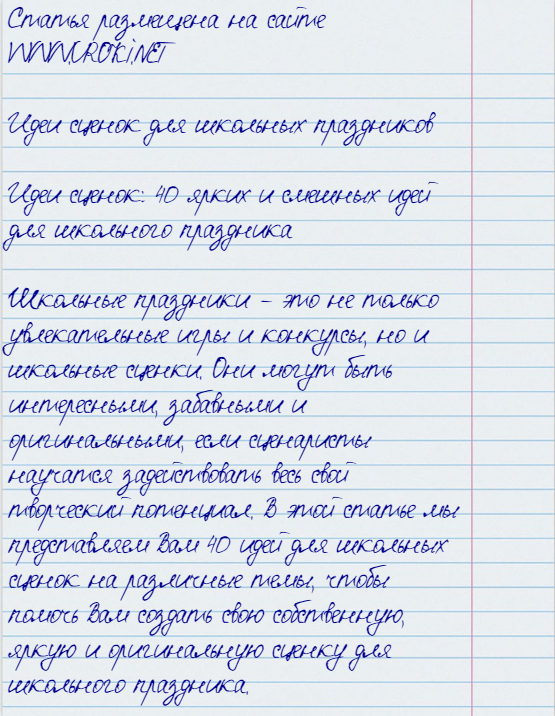 Статья размещена на сайте
WWW.UROKI.NET
Идеи сценок для школьных праздников
Идеи сценок: 40 ярких и смешных идей
для школьного праздника
Школьные праздники – это не только
увлекательные игры и конкурсы, но и
школьные сценки. Они могут быть
интересными, забавными и
оригинальными, если сценаристы
научатся задействовать весь свой
творческий потенциал. В этой статье мы
представляем Вам 40 идей для школьных
сценок на различные темы, чтобы
помочь Вам создать свою собственную,
яркую и оригинальную сценку для
школьного праздника.